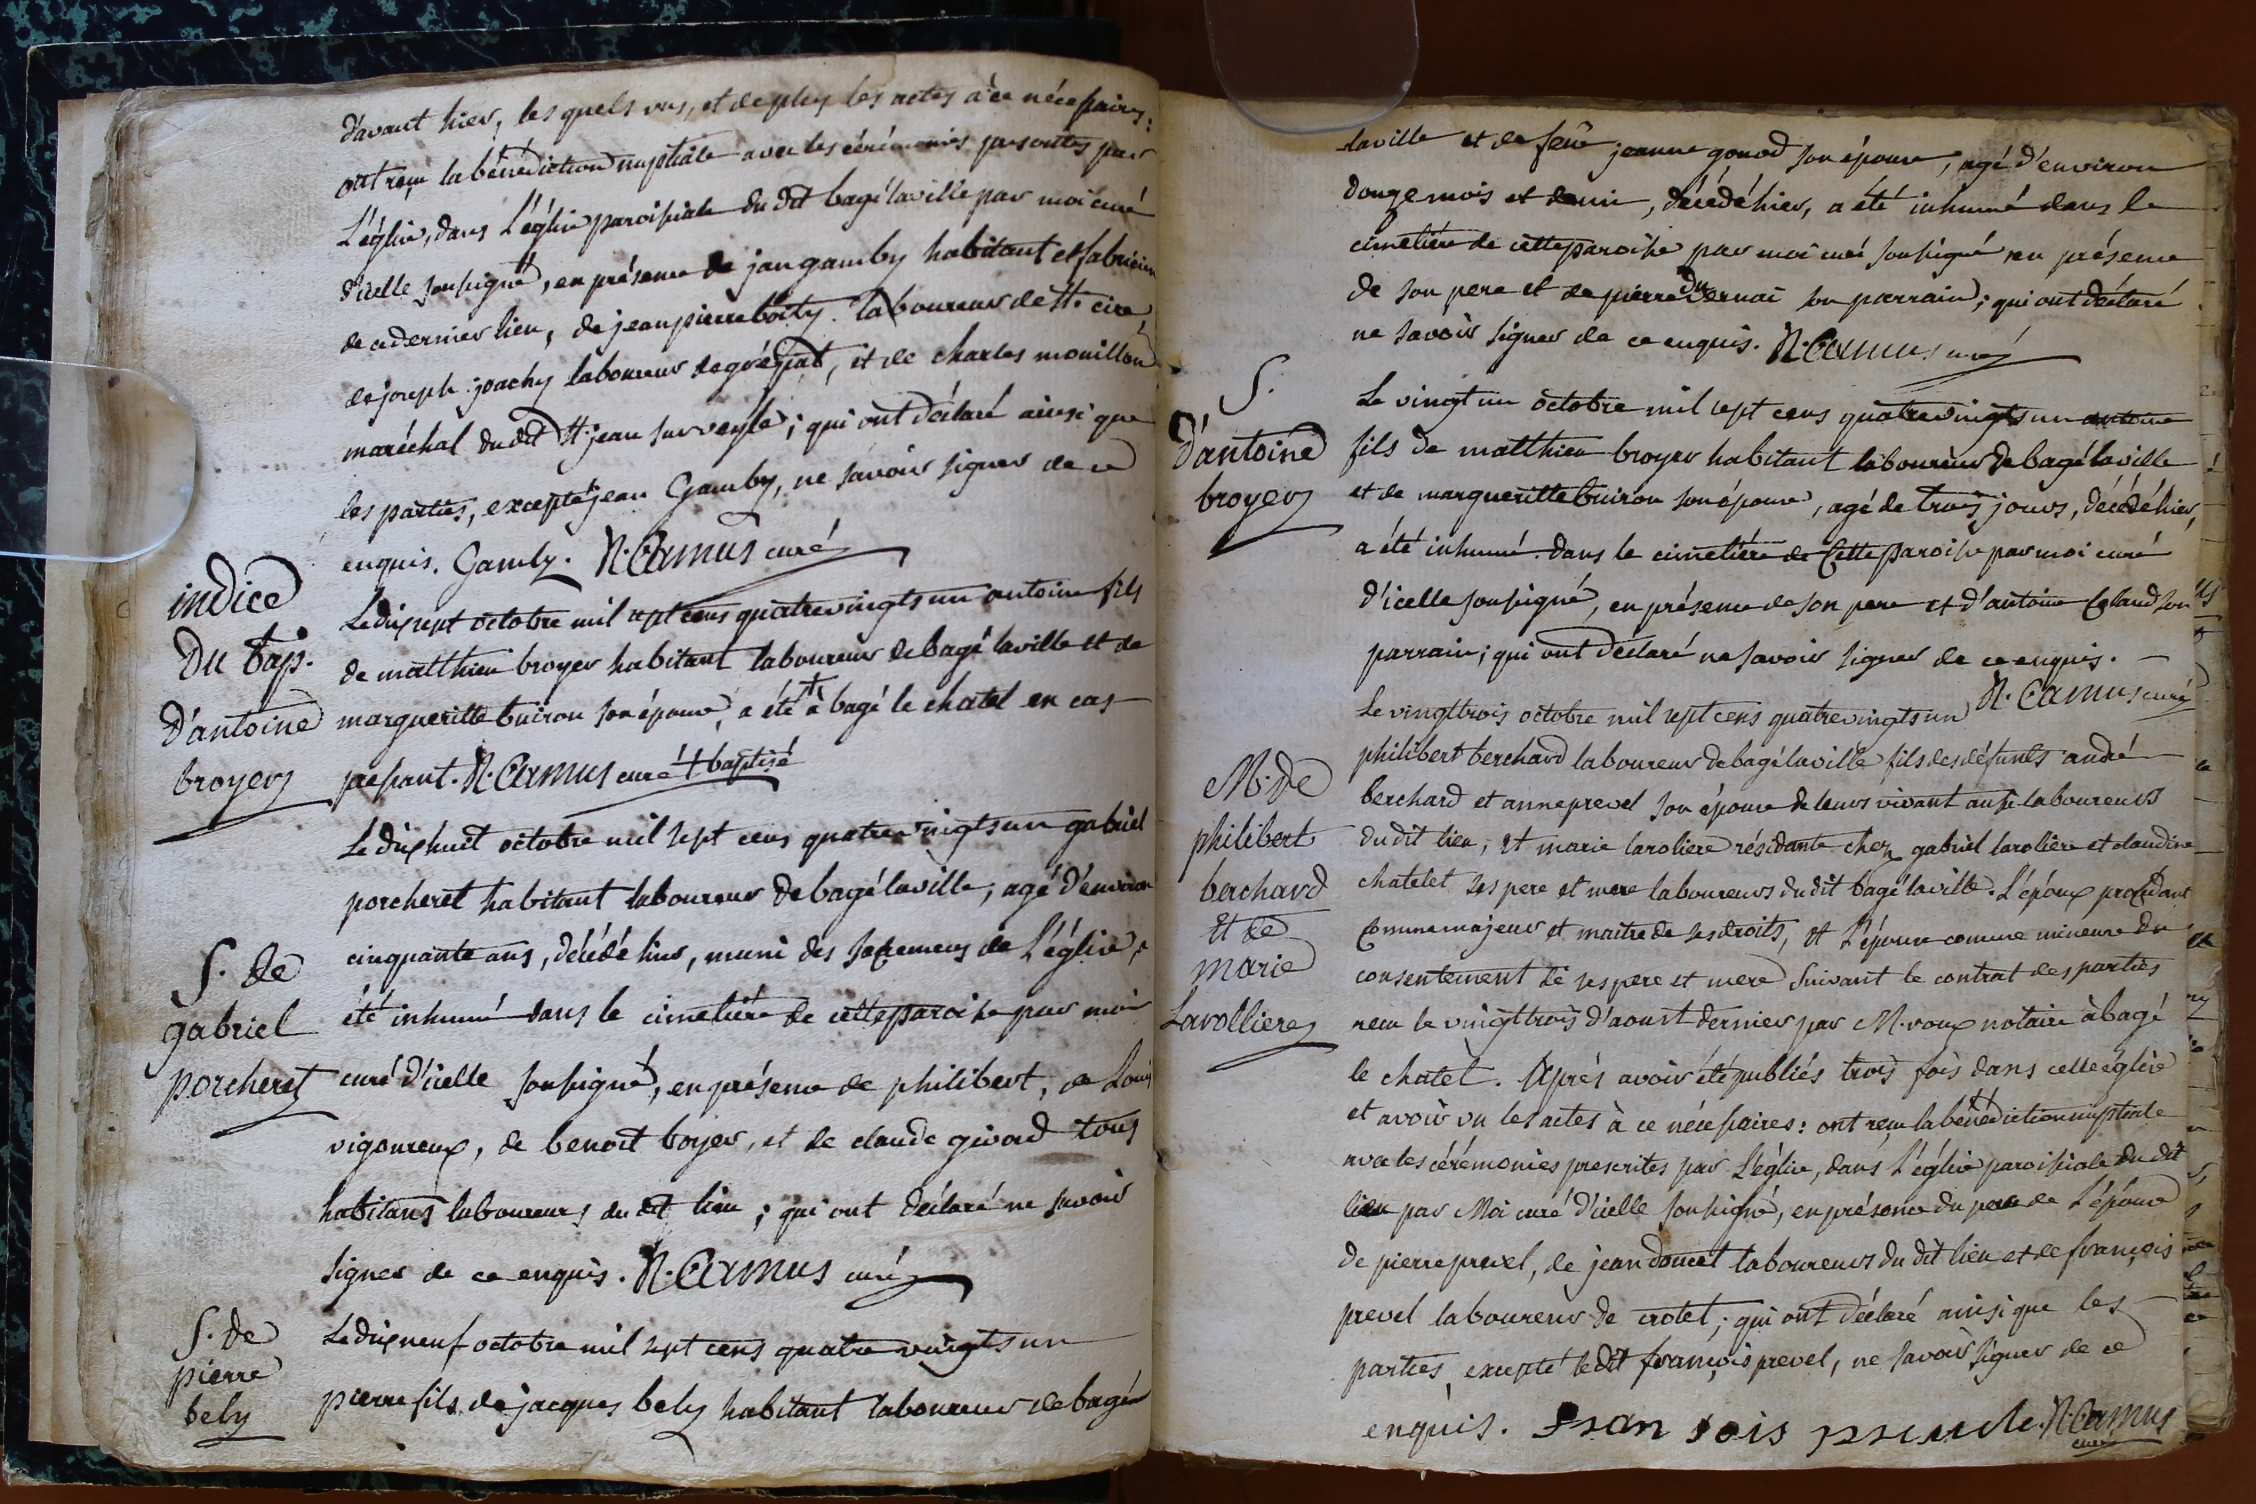 d'avant hier, les quels vus, et de plus les actes à ce nécessaires:
ont reçu la bénédiction nuptiale avec les cérémonies prescrites par
L'église, dans L'église paroissiale du dit bagé la ville par moi curé
d'icelle soussigné, en présence de jean gamby habitant et fabricien
de ce dernier lieu, de jean pierre boity laboureur de st. cire
de joseph joachy laboureur de gréziat, et de charles mouillon
maréchal du dit st. jean sur veyle; qui ont déclaré ainsi que
les parties, excepté jean Gamby, ne savoir signer de ce
enquis. Gamby. N. Camus curé
indice
du bap.
d'antoine
broyer
Le dix sept octobre mil sept cens quatre vingts un antoine fils
de matthieu broyer habitant laboureur de bagé la ville et de
margueritte buiron son épouse, a été + à bagé le chatel en cas
pressant. N. Camus curé + baptisé
S. de
gabriel
porcheret
Le dix huit octobre mil sept cens quatre vingts un gabriel
porcheret habitant laboureur de bagé la ville, agé d'environ
cinquante ans, décédé hier, muni des sacremens de L'église, a
été inhumé dans le cimetière de cette paroisse par moi
curé d'icelle soussigné, en présence de philibert, de Louis
vigoureux, de benoit boyer, et de claude givord tous
habitans laboureurs du dit lieu; qui ont déclaré ne savoir
signer de ce enquis. N. Camus curé
S. de
pierre
bely
Le dix neuf octobre mil sept cens quatre vingts un
pierre fils de jacques bely habitant laboureur de bagé
laville et de feüe jeanne gonod son épouse, agé d'environ
douze mois et demi, décédé hier, a été inhumé dans le
cimetière de cette paroisse par moi curé soussigné en présence
de son pere et de pierre du vernai son parrain; qui ont déclaré
ne savoir signer de ce enquis. N. Camus curé
S.
d'antoine
broyer
Le vingt un octobre mil sept cens quatre vingts un antoine
fils de matthieu broyer habitant laboureur de bagé la ville
et de margueritte buiron son épouse, agé de trois jours, décédé hier,
a été inhumé dans le cimetière de Cette paroisse par moi curé
d'icelle soussigné, en présence de son pere et d'antoine Celand son
parrain; qui ont déclaré ne savoir signer de ce enquis.
N. Camus curé
M. de
philibert
berchard
et de
marie
Lavolliere
Le vingt trois octobre mil sept cens quatre vingts un
philibert berchard laboureur de bagé la ville fils des défunts andré
berchard et anne prevel son épouse de leurs vivant aussi laboureurs
du dit lieu, et marie laroliere résidante chez gabriel larolière et claudine
chatelet ses pere et mere laboureurs du dit bagé la ville. L'époux procédant
Comme majeur et maitre de ses droits, et L'épouse comme mineure du
consentement de ses pere et mere suivant le contrat des parties
reçu le vingt trois d'aoust dernier par M. roux notaire à bagé
le chatel. Après avoir été publiés trois fois dans cette église
et avoir vu les actes à ce nécessaires: ont reçu la bénédiction nuptiale
avec les cérémonies prescrites par L'église, dans L'église paroissiale du dit
lieu par Moi curé d'icelle soussigné, en présence du pere de L'épouse
de pierre prevel, de jean doucet laboureurs du dit lieu et de françois
prevel laboureur de crotet; qui ont déclaré ainsi que les
parties, excepté le dit françois prevel, ne savoir signer de ce
enquis. fran sois N. Camus
curé